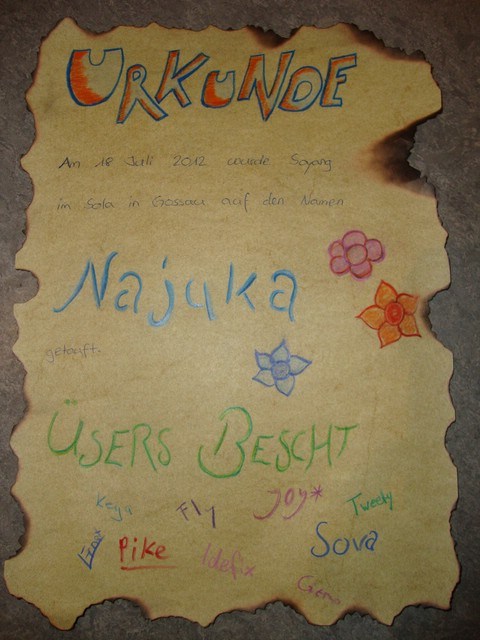 URKUNDE
Am 18 Juli 2012 wurde Soyang
im Sola in Gossau auf den Namen
Najuka
getauft.
ÜSERS BESCHT
Keya Fly Joy* Tweety
Pike Idefix Sova